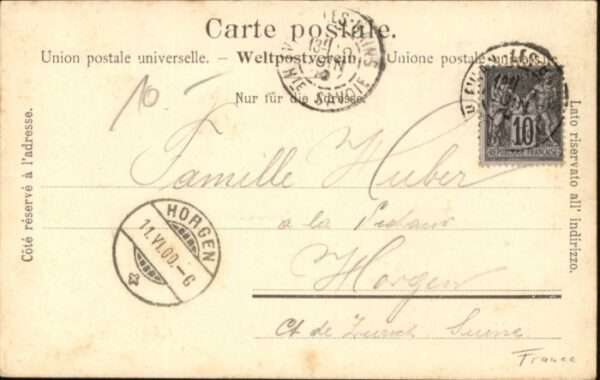 Carte postale.
Union postale universelle. — Weltpostverein. — Unione postale universale.
Nur für die Adresse.
LES-BAINS
Hte SAVOIE
10
REPUBLIQUE FRANÇAISE
10
Côté réservé à l'adresse.
Lato riservato all' indirizzo.
Famille Huber
à la
Horgen
Ct de Zurich Suisse
France
HORGEN
11.VI.00.–6